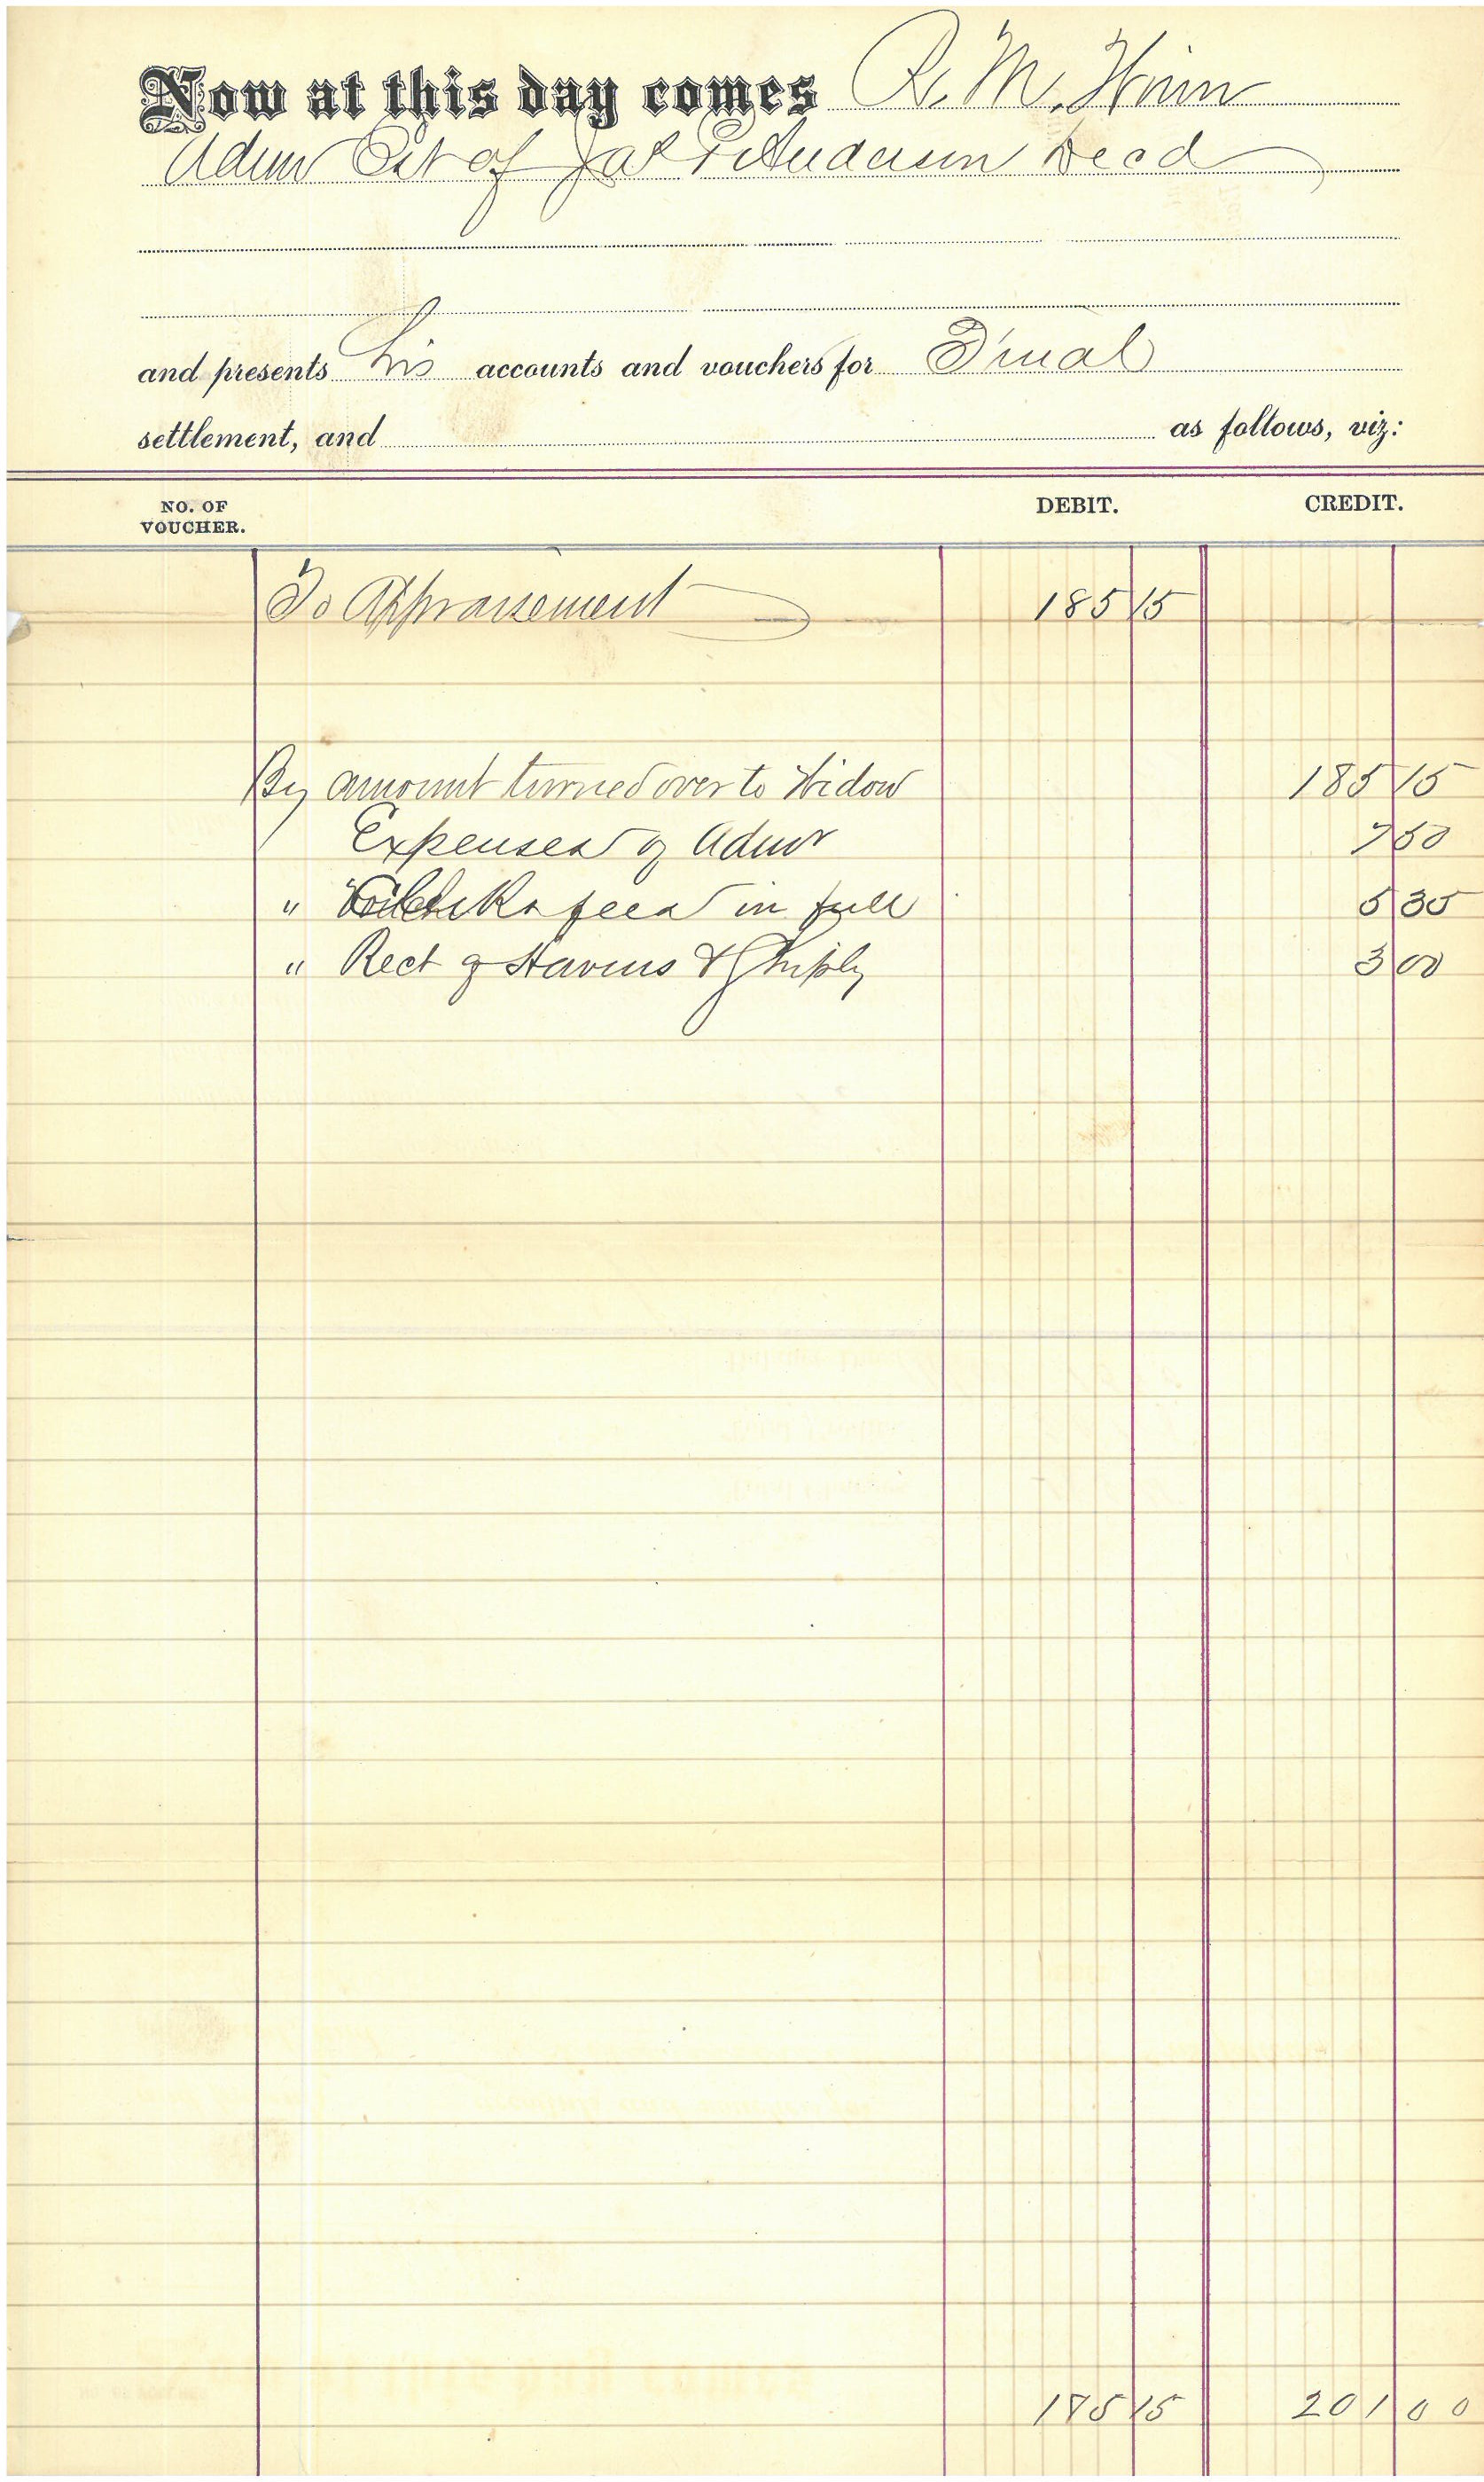 Now at this day comes R. M. Winn
Admr Est of Jas P Anderson Decd
and presents his accounts and vouchers for Final
settlement, and as follows, viz:
NO. OF VOUCHER. DEBIT. CREDIT.
To Appraisement 185 15
By amount turned over to Widow 185 15
Expenses of Admr 7 50
" Clerks fees in full 5 35
" Rect of Havens & 3 00
185 15 201 00